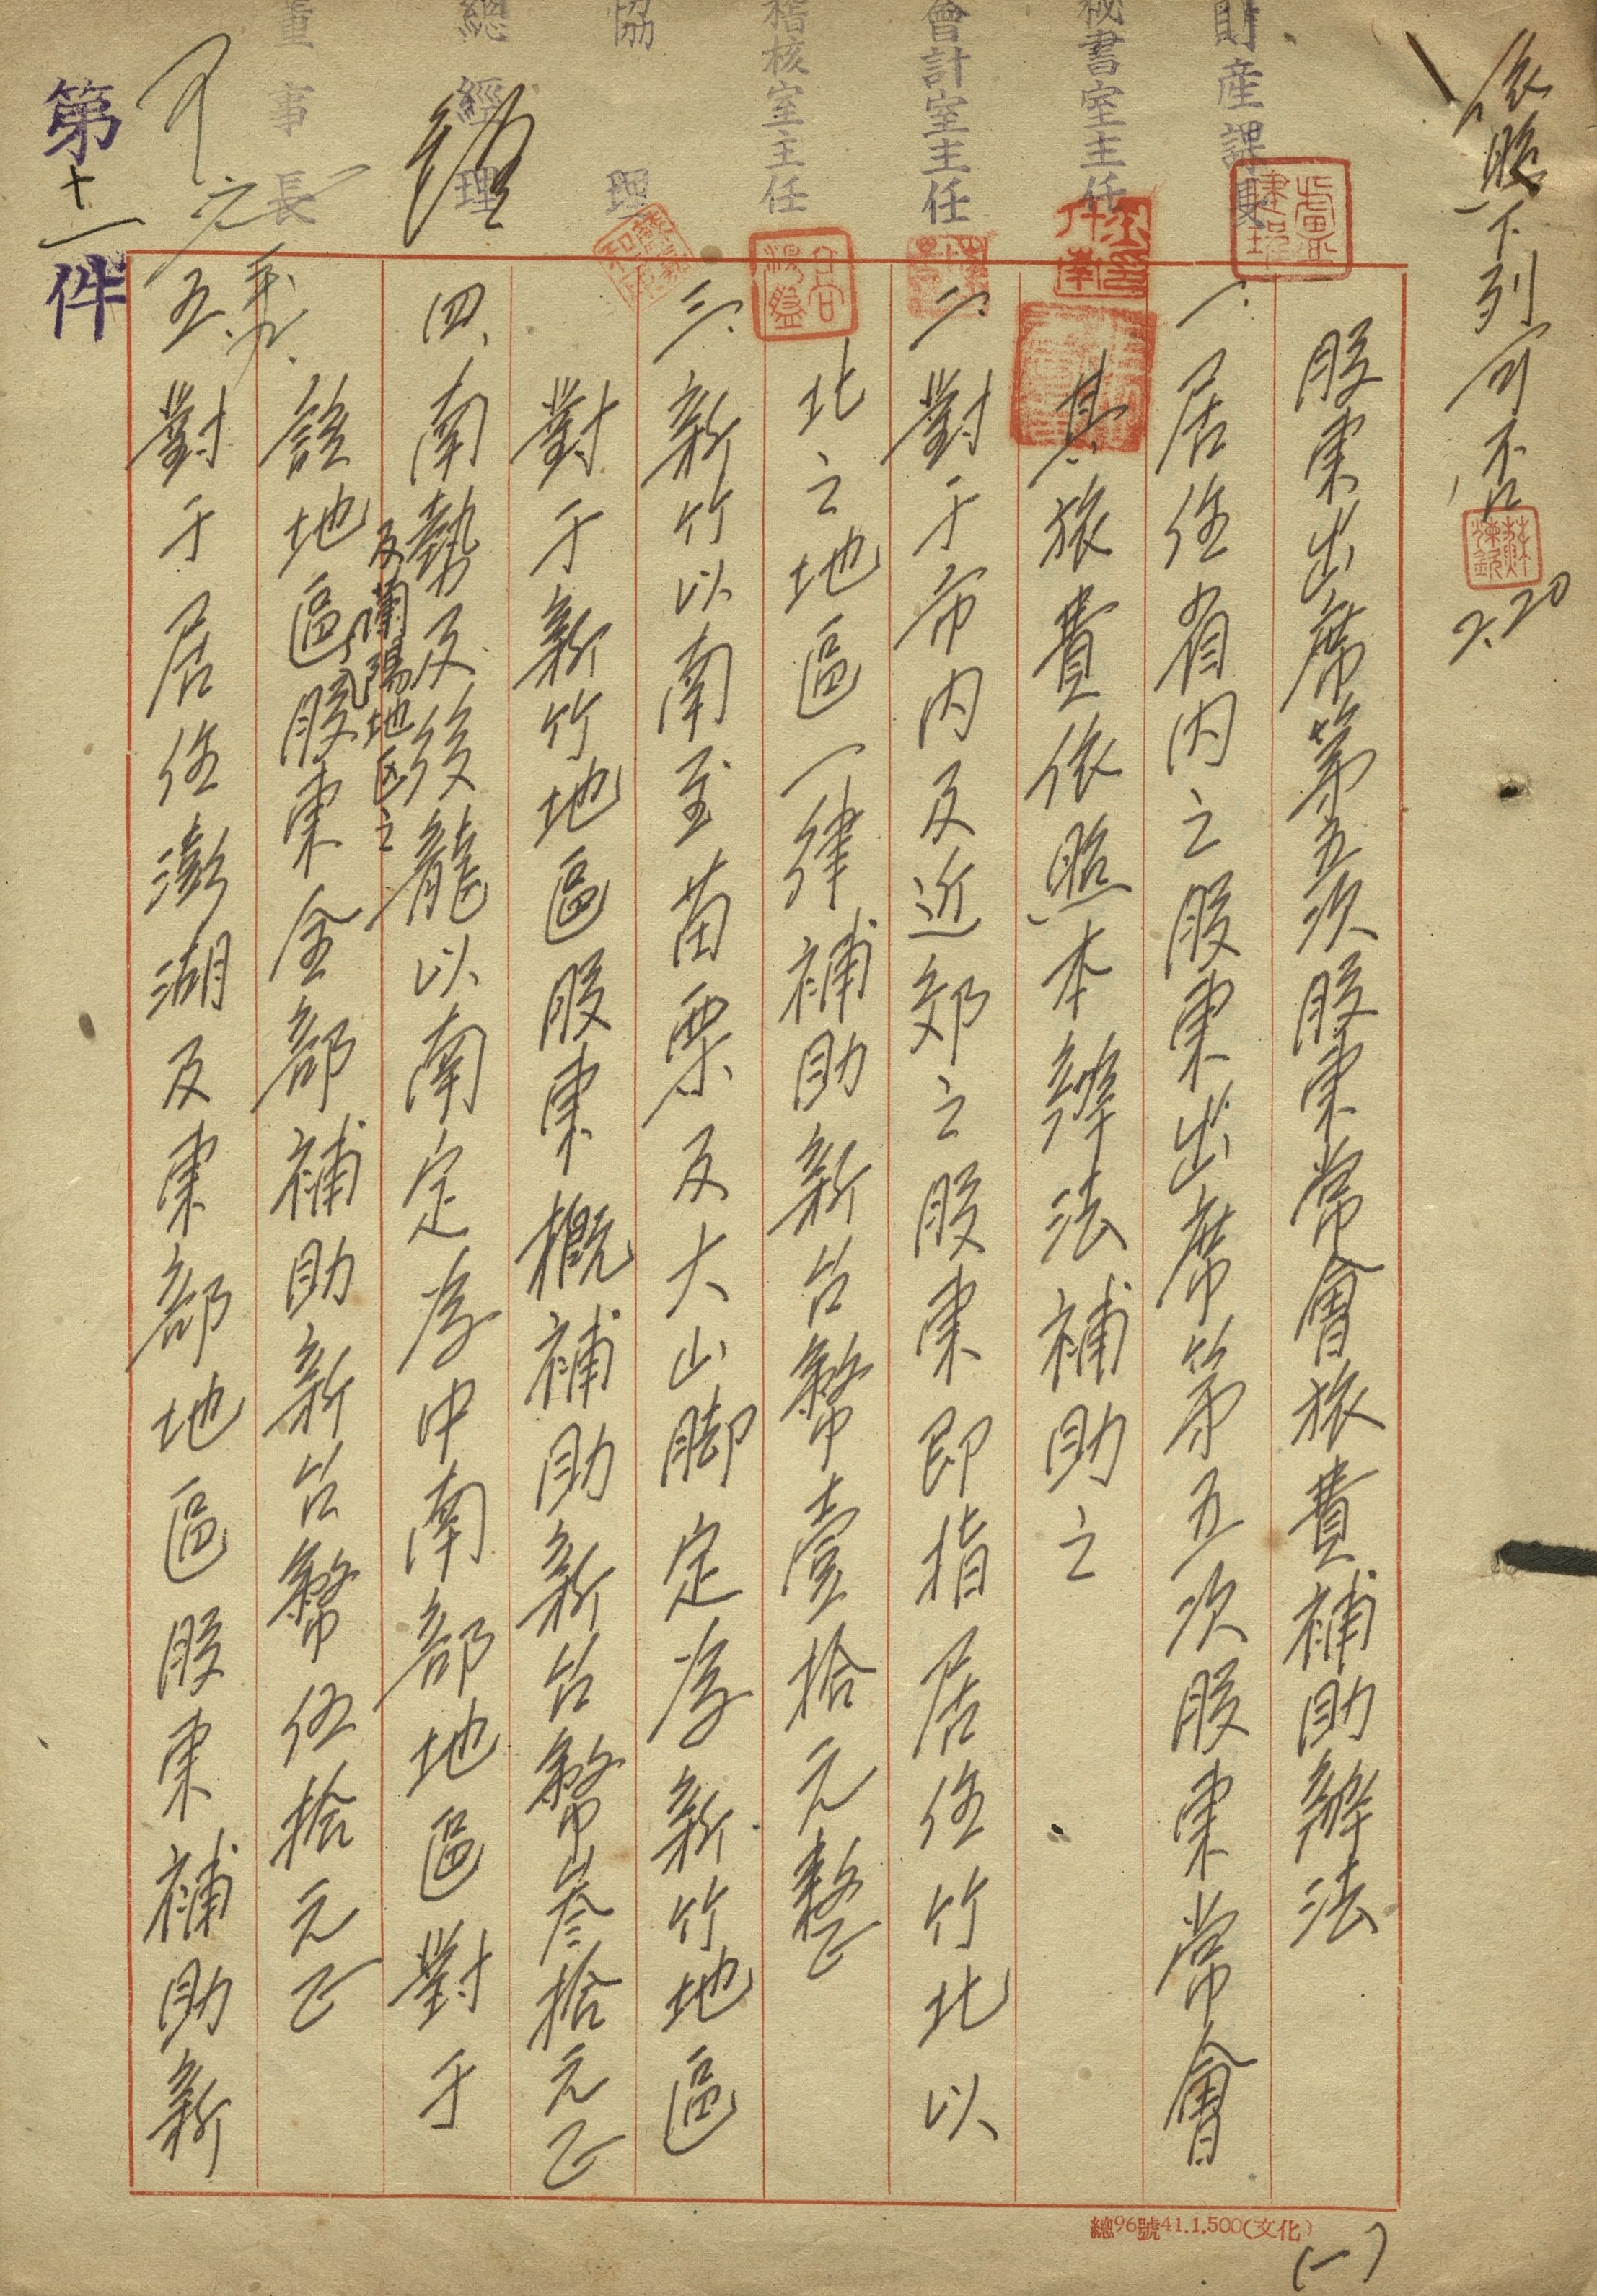 依照下列可否
2.20
財產課長
秘書室主任
會計室主任
稽核室主任
協理
總經理
董事長
可
第十一件
股東出席第五次股東常會旅費補助辦法
一、居住省内之股東出席第五次股東常會
其旅費依照本辦法補助之
二、對于市内及近郊之股東即指居住竹北以
北之地區一律補助新台幣壹拾元整
三、新竹以南至苗栗及大山脚定為新竹地區
對于新竹地區股東概補助新台幣叁拾元正
四、南勢及後龍以南定為中南部地區對于
及蘭陽地区之
該地區股東全部補助新台幣伍拾元正
五、對于居住澎湖及東部地區股東補助新
總96號41.1.500(文化)
(一)